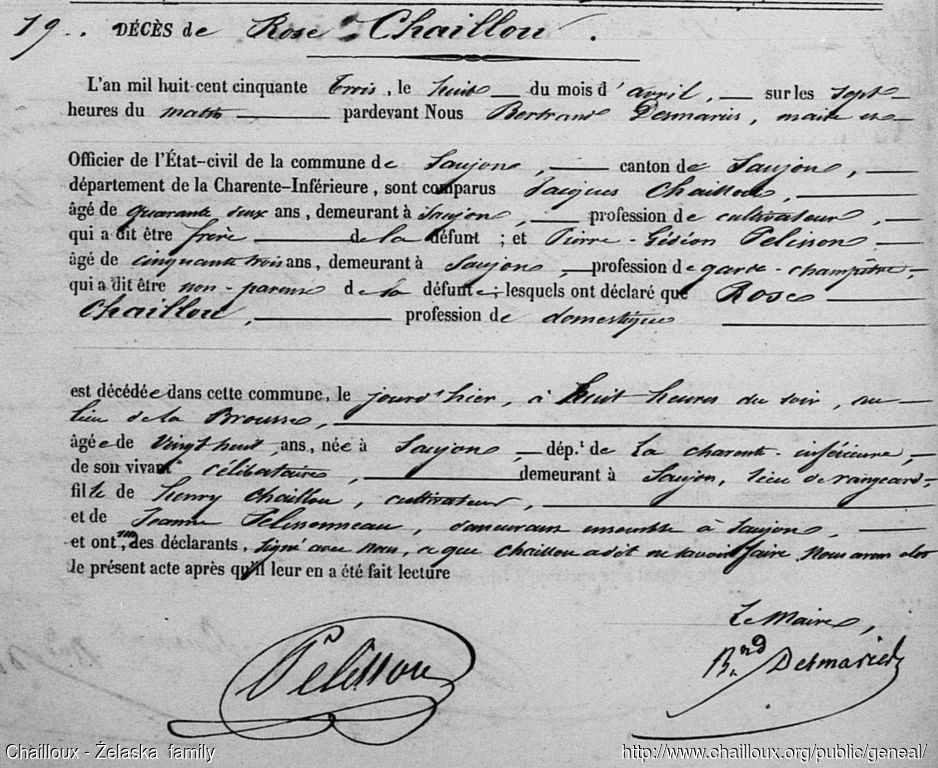 19. DÉCÈS de Rose Chaillou.
L'an mil huit cent cinquante trois, le huit du mois d'avril, sur les sept
heures du matin pardevant Nous Bertrand Desmaries, maire et
Officier de l'État-civil de la commune de Saujon, canton de Saujon,
département de la Charente-Inférieure, sont comparus Jacques Chaillou,
âgé de quarante deux ans, demeurant à Saujon, profession de cultivateur,
qui a dit être frère de la défunt ; et Pierre-Gédéon Pelisson
âgé de cinquante trois ans, demeurant à Saujon, profession de garde-champêtre
qui a dit être non-parens de la défunte ; lesquels ont déclaré que Rose
Chaillou, profession de domestique
est décédée dans cette commune, le jourd'hier, à huit heures du soir, au
lieu de la Brousse,
âgée de vingt huit ans, née à Saujon, dép.t de la charente-inférieure,
de son vivant célibataire, demeurant à Saujon, lieu de
fille de henry Chaillou, cultivateur,
et de Jeanne Pelissonneau, demeurans ensemble à Saujon,
et ont, des déclarants, signé avec nous, ce que Chaillou a dit ne savoir faire. Nous avons clos
le présent acte après qu'il leur en a été fait lecture
Le Maire,
Pelisson
B.nd Desmaries
Chailloux - Želaska family
http://www.chailloux.org/public/geneal/